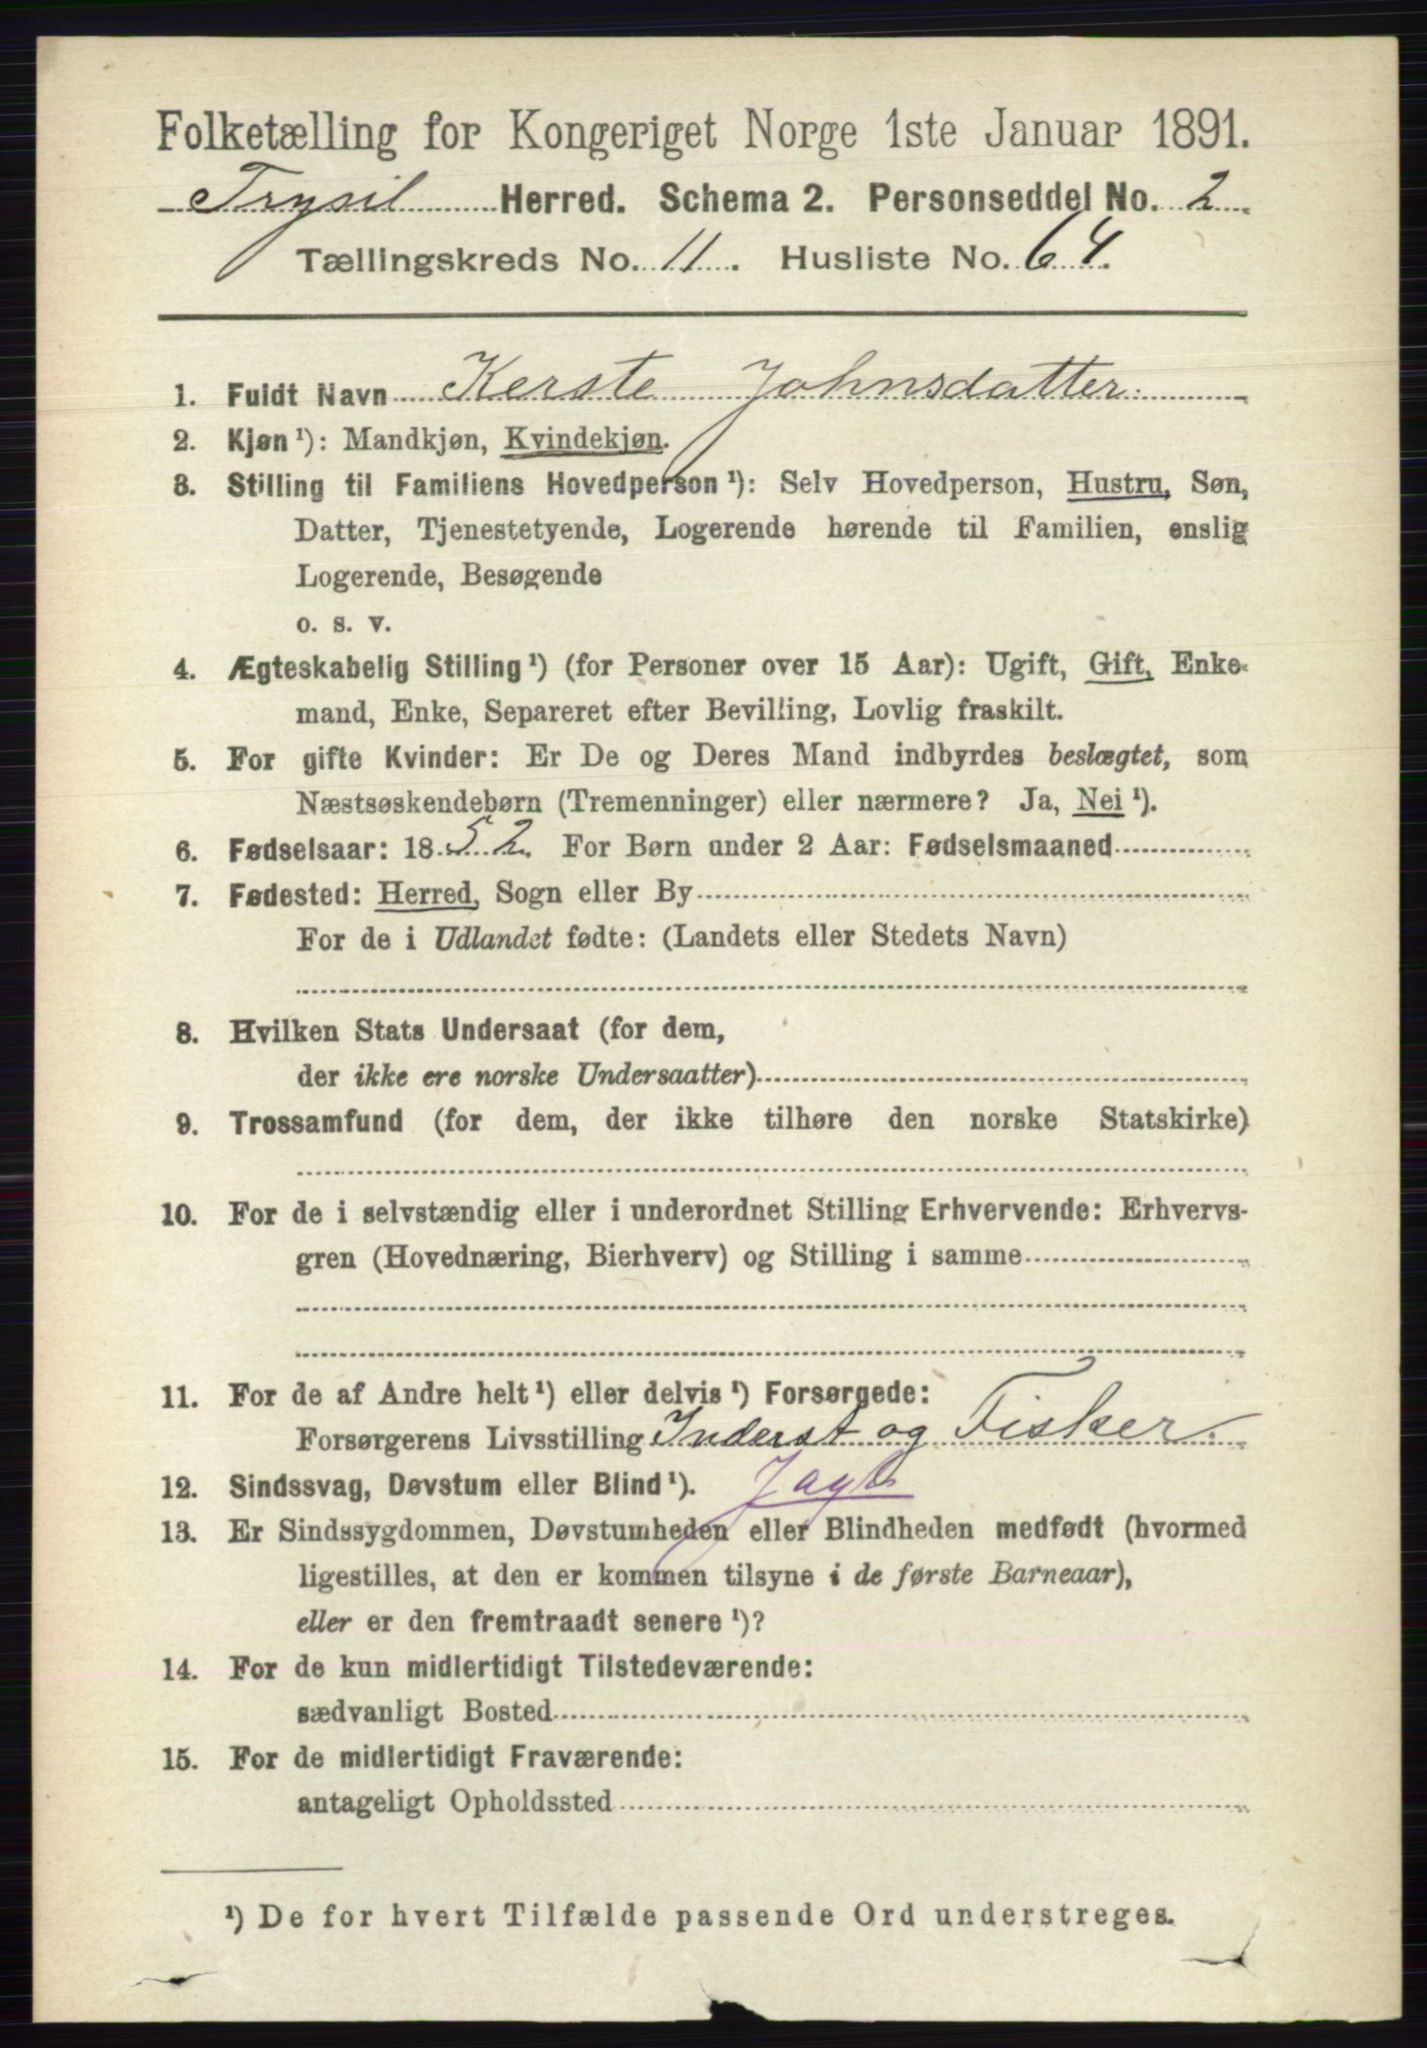 Folketælling for Kongeriget Norge 1ste Januar 1891.
Trysil Herred. Schema 2. Personseddel No. 2
Tællingskreds No. 11. Husliste No. 64.
1. Fuldt Navn Kerste Johnsdatter
2. Kjøn ¹): Mandkjøn, Kvindekjøn.
3. Stilling til Familiens Hovedperson ¹): Selv Hovedperson, Hustru, Søn,
Datter, Tjenestetyende, Logerende hørende til Familien, enslig
Logerende, Besøgende
o. s. v.
4. Ægteskabelig Stilling ¹) (for Personer over 15 Aar): Ugift, Gift, Enke-
mand, Enke, Separeret efter Bevilling, Lovlig fraskilt.
5. For gifte Kvinder: Er De og Deres Mand indbyrdes beslægtet, som
Næstsøskendebørn (Tremenninger) eller nærmere? Ja, Nei ¹).
6. Fødselsaar: 1852. For Børn under 2 Aar: Fødselsmaaned
7. Fødested: Herred, Sogn eller By
For de i Udlandet fødte: (Landets eller Stedets Navn)
8. Hvilken Stats Undersaat (for dem,
der ikke ere norske Undersaatter)
9. Trossamfund (for dem, der ikke tilhøre den norske Statskirke)
10. For de i selvstændig eller i underordnet Stilling Erhvervende: Erhvervs-
gren (Hovednæring, Bierhverv) og Stilling i samme
11. For de af Andre helt ¹) eller delvis ¹) Forsørgede:
Forsørgerens Livsstilling Inderst og Fisker.
12. Sindssvag, Døvstum eller Blind ¹).
13. Er Sindssygdommen, Døvstumheden eller Blindheden medfødt (hvormed
ligestilles, at den er kommen tilsyne i de første Barneaar),
eller er den fremtraadt senere ¹)?
14. For de kun midlertidigt Tilstedeværende:
sædvanligt Bosted
15. For de midlertidigt Fraværende:
antageligt Opholdssted
¹) De for hvert Tilfælde passende Ord understreges.